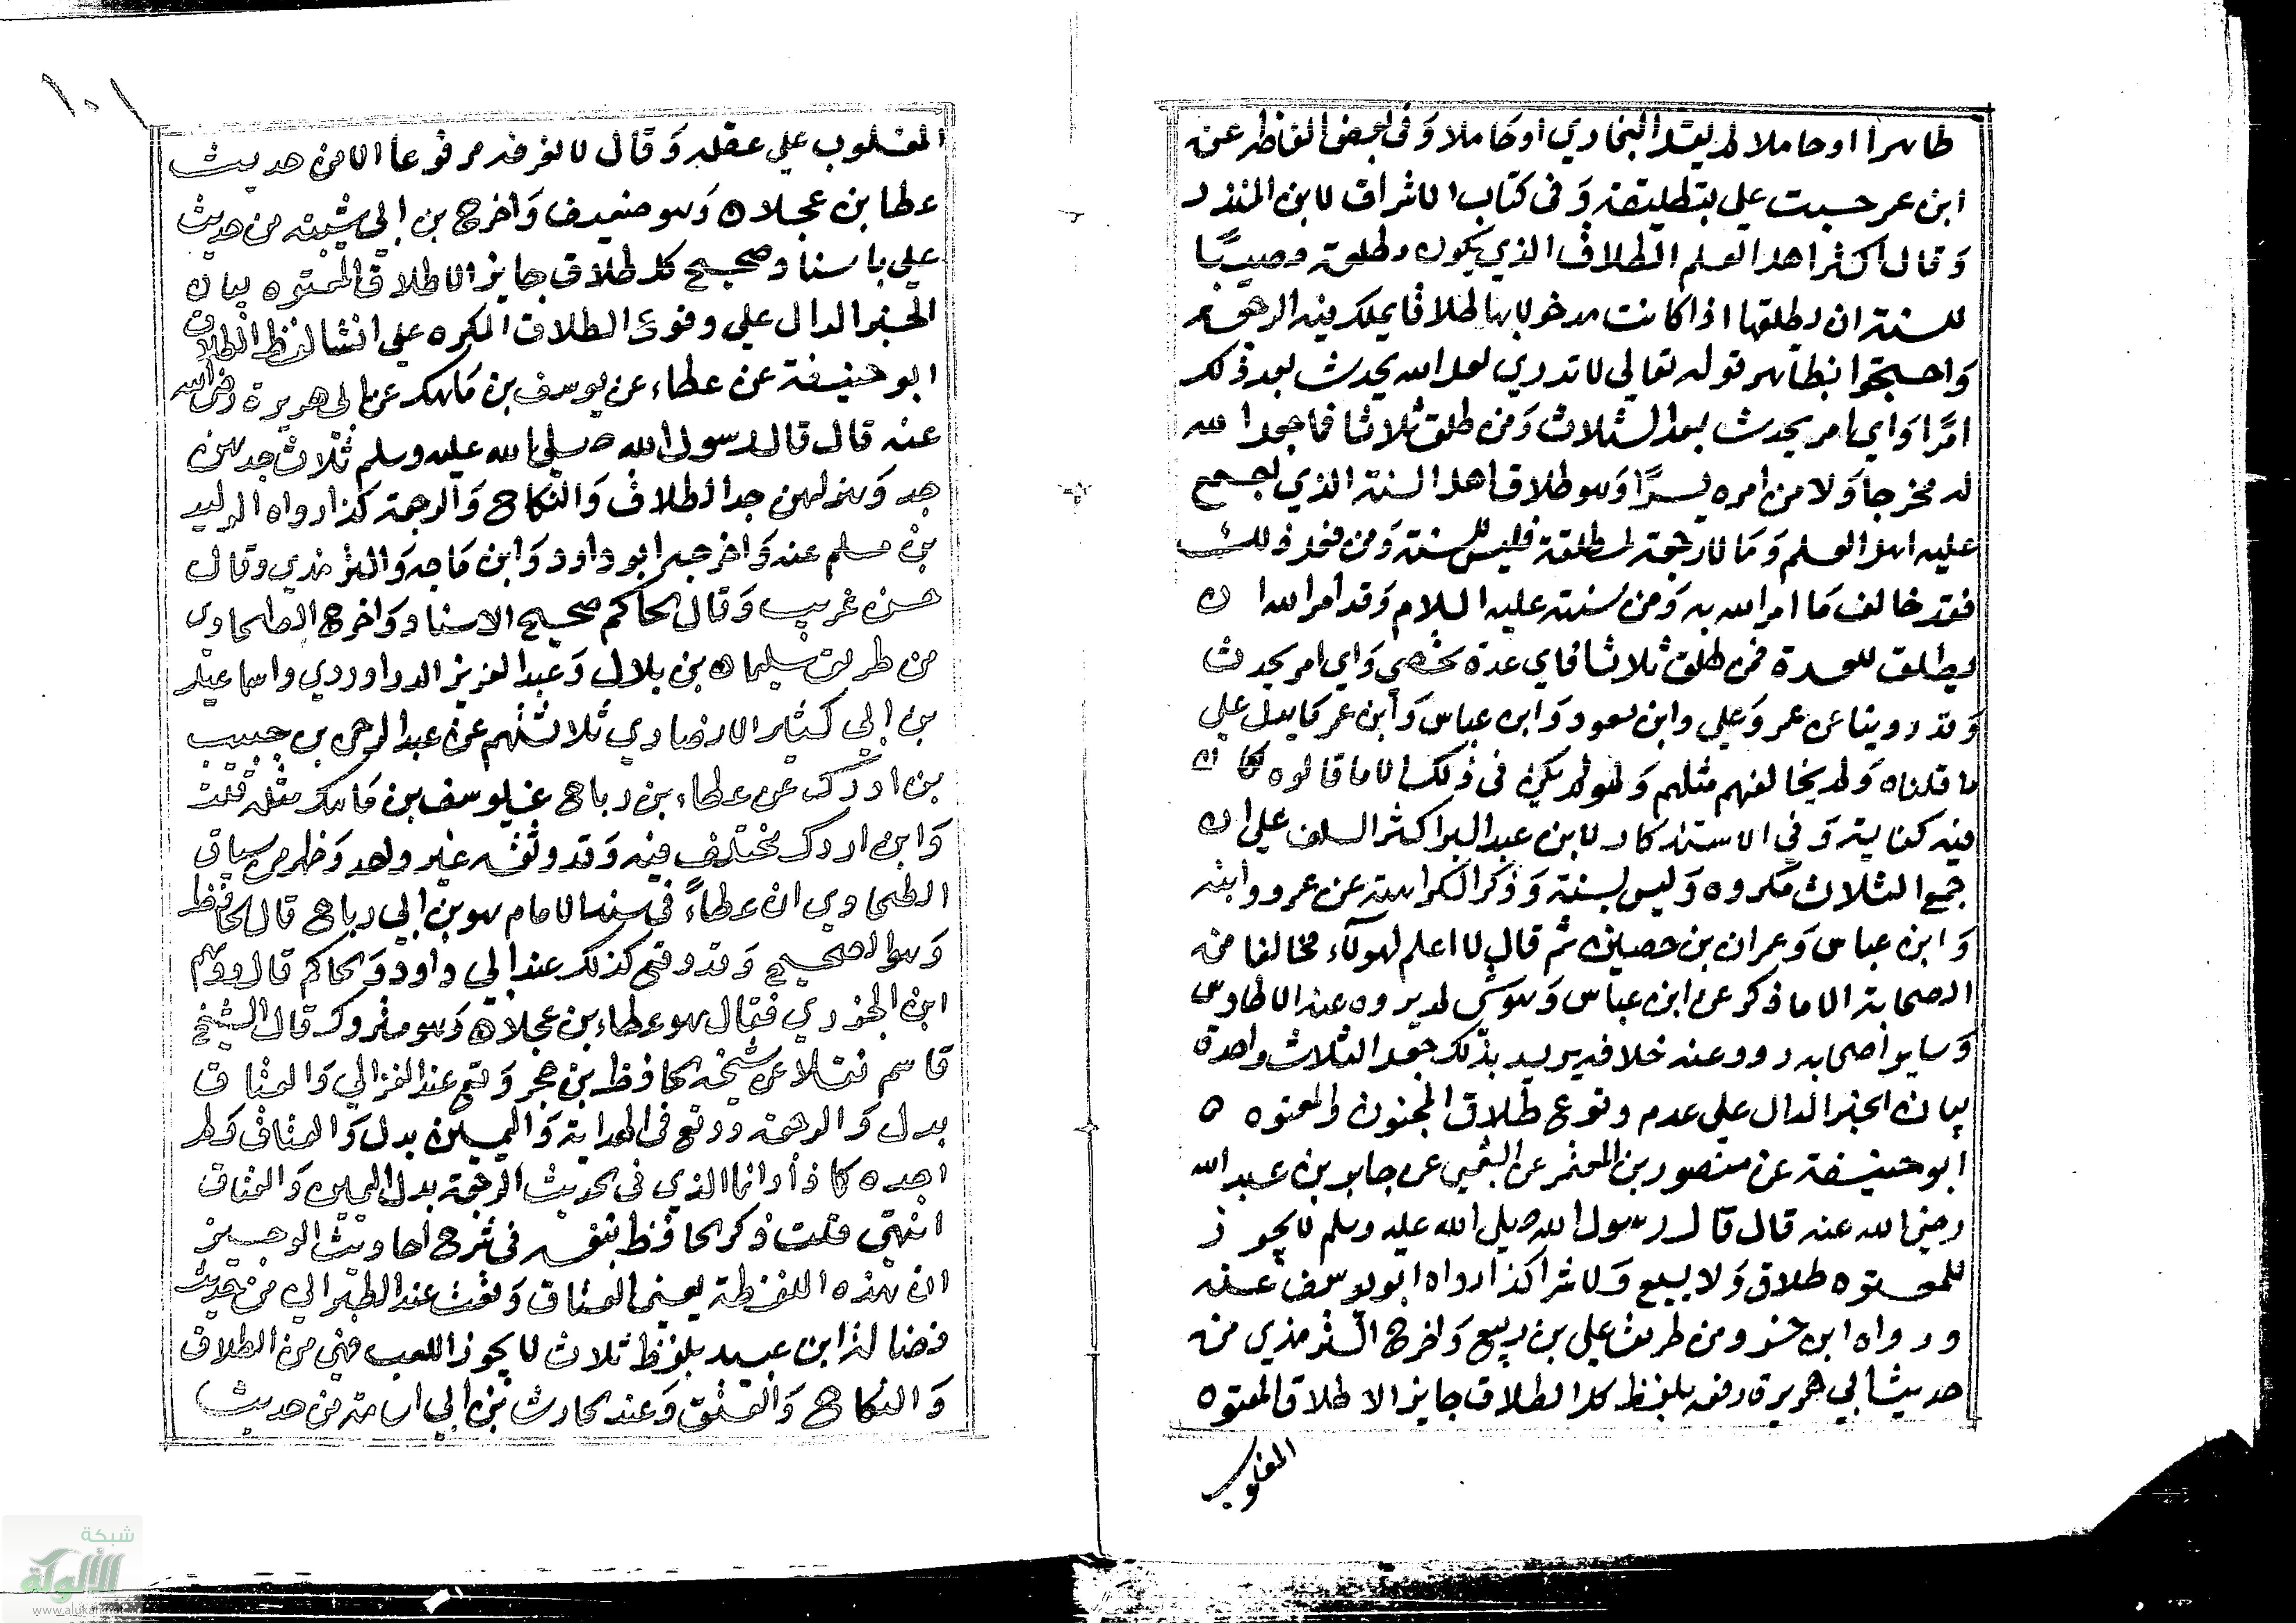 طاهرا او حاملا لم يقل البخاري او حاملا وفي بعض الفاظه عن
ابن عمر حسبت علي بتطليقة وفي كتاب الاشراف لابن المنذر
وقال اكثر اهل العلم الطلاق الذي يكون مطلقه مصيبا
للسنة ان يطلقها اذا كانت مدخولا بها طلاقا يملك فيه الرجعة
واحتجوا بظاهر قوله تعالي لا تدري لعل الله يحدث بعد ذلك
امرا واي امر يحدث بعد الثلاث ومن طلق ثلاثا فما جعل الله
له مخرجا ولا من امره يسرا وهو طلاق اهل السنة الذي اجمع
عليه اهل العلم وما لا رجعة لمطلقه فليس للسنة ومن فعل ذلك
فقد خالف ما امر الله به ومن سنته عليه السلام وقد امر الله ان
يطلق للعدة فمن طلق ثلاثا فاي عدة تحصي واي امر يحدث
وقد روينا عن عمر وعلي وابن مسعود وابن عباس وابن عمر ما يدل علي
ما قلناه ولم يخالفهم مثلهم ولو لم يكن في ذلك الا ما قالوه كان
فيه كفاية وفي الاستذكار لابن عبد البر اكثر السلف علي ان
جمع الثلاث مكروه وليس بسنة وذكر الكراهة عن عمر وابنه
وابن عباس وعمران بن حصين ثم قال لا اعلم لهولاء مخالفا من
الصحابة الا ما ذكر عن ابن عباس وهو شي لم يروه عنه الا طاوس
وساير اصحابه رووا عنه خلافه يريد بذلك جعل الثلاث واحدة
بيان الخبر الدال علي عدم وقوع طلاق المجنون والمعتوه ه
ابو حنيفة عن منصور بن المعتمر عن الشعبي عن جابر بن عبد الله
رضي الله عنه قال قال رسول الله صلي الله عليه وسلم لا يجوز
للمعتوه طلاق ولا بيع ولا شرا كذا رواه ابو يوسف عنه
ورواه ابن خسرو من طريق علي بن ربيع واخرج الترمذي من
حديث ابي هريرة رفعه بلفظ كل الطلاق جايز الا طلاق المعتوه
المغلوب
١٠١
المغلوب علي عقله وقال لا نعرفه مرفوعا الا من حديث
عطا بن عجلان وهو ضعيف واخرج بن ابي شيبة من حديث
علي باسناد صحيح كل طلاق جايز الا طلاق المعتوه بيان
الخبر الدال علي وقوع الطلاق المكره علي انشا لفظ الطلاق
ابو حنيفة عن عطاء عن يوسف بن ماهك عن ابي هريرة رضي الله
عنه قال قال رسول الله صلي الله عليه وسلم ثلاث جدهن
جد وهزلهن جد الطلاق والنكاح والرجعة كذا رواه الوليد
بن مسلم عنه واخرجه ابو داود وابن ماجه والترمذي وقال
حسن غريب وقال الحاكم صحيح الاسناد واخرج الطحاوي
من طريق سليمان بن بلال وعبد العزيز الدراوردي واسماعيل
بن ابي كثير الانصاري ثلاثتهم عن عبد الرحمن بن حبيب
بن اردك عن عطاء بن رباح عن يوسف بن ماهك مثله قلت
وابن اردك مختلف فيه وقد وثقه غير واحد وظهر من سياق
الطحاوي ان عطاء في سند الامام هو بن ابي رباح قال الحافظ
وهو الصحيح وقد وقع كذلك عند ابي داود والحاكم قال ووهم
ابن الجوزي فقال هو عطاء بن عجلان وهو متروك قال الشيخ
قاسم نقلا عن شيخه الحافظ بن حجر وقع عند الغزالي والعتاق
بدل والرجعة ووقع في الهداية واليمين بدل والعتاق ولم
اجده كذا وانما الذي في الحديث الرجعة بدل اليمين والعتاق
انتهي قلت ذكر الحافظ بنفسه في شرح احاديث الوجيز
ان هذه اللفظة يعني العتاق وقعت عند الطبراني من حديث
فضالة ابن عبيد بلفظ ثلاث لا يجوز اللعب فيهن الطلاق
والنكاح والعتق وعند الحارث بن ابي اسامة من حديث
شبكة
الألوكة
www.alukah.net